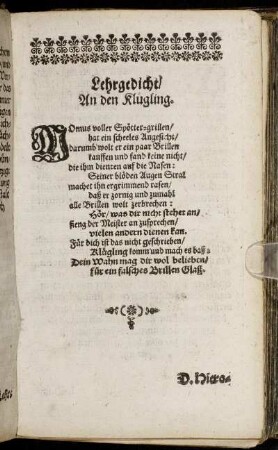 Lehrgedicht/
An den Klugling.
MOmus voller Spötter-grillen/
hat ein scheeles Angesicht/
darumb wolt er ein paar Brillen
kauffen und fand keine nicht/
die ihm dienten auf die Nasen:
Seiner blöden Augen Stral
machet ihn ergrimmend rasen/
daß er zornig und zumahl
alle Brillen wolt zerbrechen:
Hör/ was dir nicht stehet an/
fieng der Meister an zusprechen/
vielen andern dienen kan.
Für dich ist das nicht geschrieben/
Klügling komm und mach es baß:
Dein Wahn mag dir wol belieben/
für ein falsches Brillen Glaß.